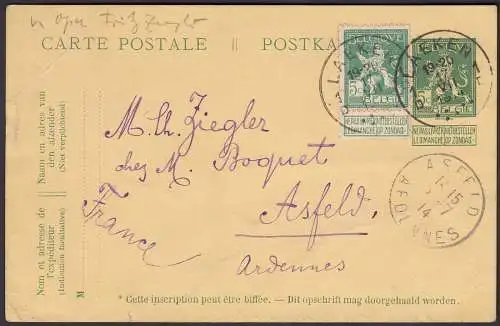 v Opa Fritz Ziegler
CARTE POSTALE || POSTKA
Naam en adres van
den afzender
(Niet verplichtend)
Nom et adresse de
l'expéditeur
(Indication facultative)
M
5c BELGIË
NE PAS LIVRER LE DIMANCHE
NIET BESTELLEN OP ZONDAG
LAEKEN
19-20
5c BELGIË
NE PAS LIVRER LE DIMANCHE
NIET BESTELLEN OP ZONDAG
LAEKEN
19-20
M. Ch. Ziegler
chez M. Boquet
Asfeld,
France
Ardennes
ASFELD
15
14
ARDENNES
* Cette inscription peut être biffée. — Dit opschrift mag doorgehaald worden.